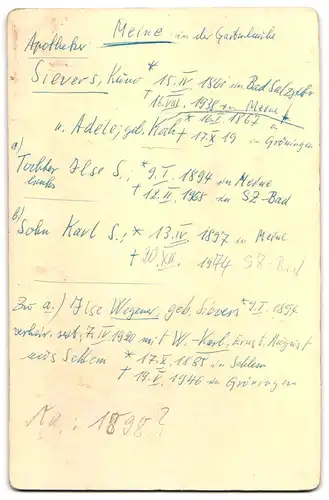 Meine in der Gartenlaube
Apotheker
Sievers, Kuno * 15. IV. 1861 in Bad Salzgitter
† 16. VIII. 1938 in Meine
u. Adele, geb. Koch * 16. I. 1867 in
† 17. X 19 in Gröningen
a)
Tochter Ilse S., * 9. I. 1894 in Meine
links † 12. II. 1965 in SZ-Bad
b)
Sohn Karl S., * 13. IV 1897 in Meine
† 20. XII. 1974 SZ-Bad
Zu a.) Ilse Wegener, geb. Sievers * 9. I. 1894
verheir. seit 7. IV 1920 mit W.-Karl, Ernst August
aus Sehlem * 17. X. 1885 in Sehlem
† 19. V. 1946 in Gröningen
1898?